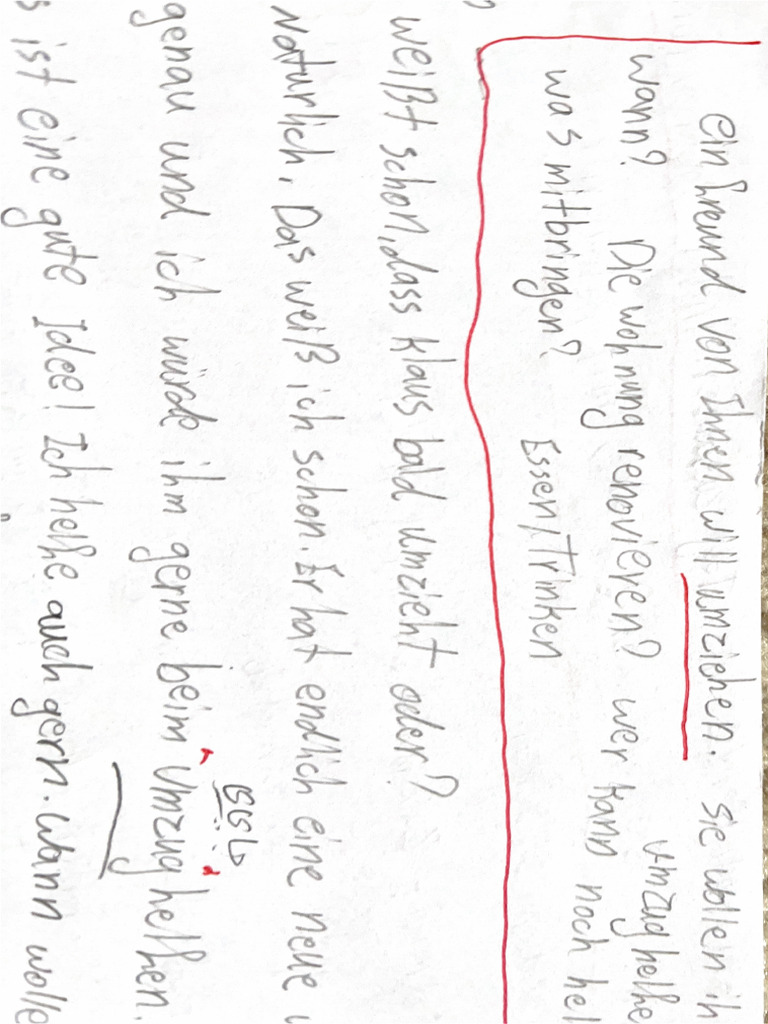 ein Freund von Ihnen will umziehen. Sie wollen ih
umzug helfe
wann? Die wohnung renovieren? wer kann noch hel
was mitbringen? Essen/Trinken
weißt schon, dass klaus bald umzieht oder?
Natürlich. Das weiß ich schon. Er hat endlich eine neue
genau und ich würde ihm gerne beim Umzug helfen.
s ist eine gute Idee! Ich helfe auch gern. wann wolle